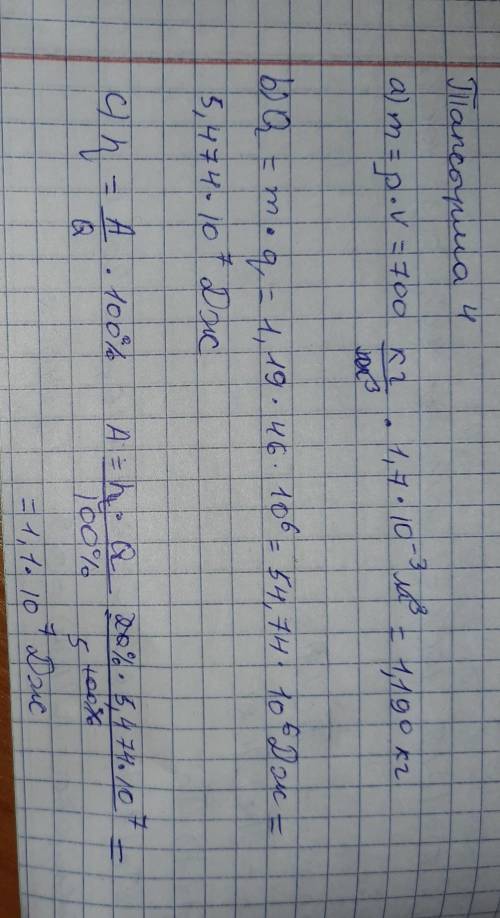 Тапсырма 4
a) m = ρ · V = 700 кг/м³ · 1,7 · 10⁻³ м³ = 1,190 кг
b) Q = m · q = 1,19 · 46 · 10⁶ = 54,74 · 10⁶ Дж =
5,474 · 10⁷ Дж
c) η = A/Q · 100% A = η · Q/100% = 20% · 5,474 · 10⁷/100% 5 =
= 1,1 · 10⁷ Дж